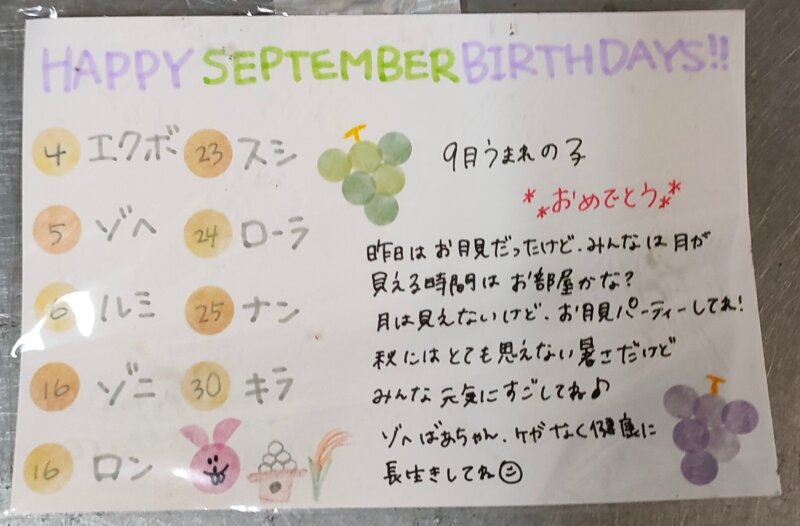 HAPPY SEPTEMBER BIRTHDAYS!!
4 エクボ 23 スシ
5 ゾヘ 24 ローラ
6 ルミ 25 ナン
16 ゾニ 30 キラ
16 ロン
9月うまれの子
**おめでとう**
昨日はお月見だったけど、みんなは月が
見える時間はお部屋かな?
月は見えないけど、お月見パーティーしてね!
秋にはとても思えない暑さだけど
みんな元気にすごしてね♪
ゾヘばあちゃん、ケガなく健康に
長生きしてね